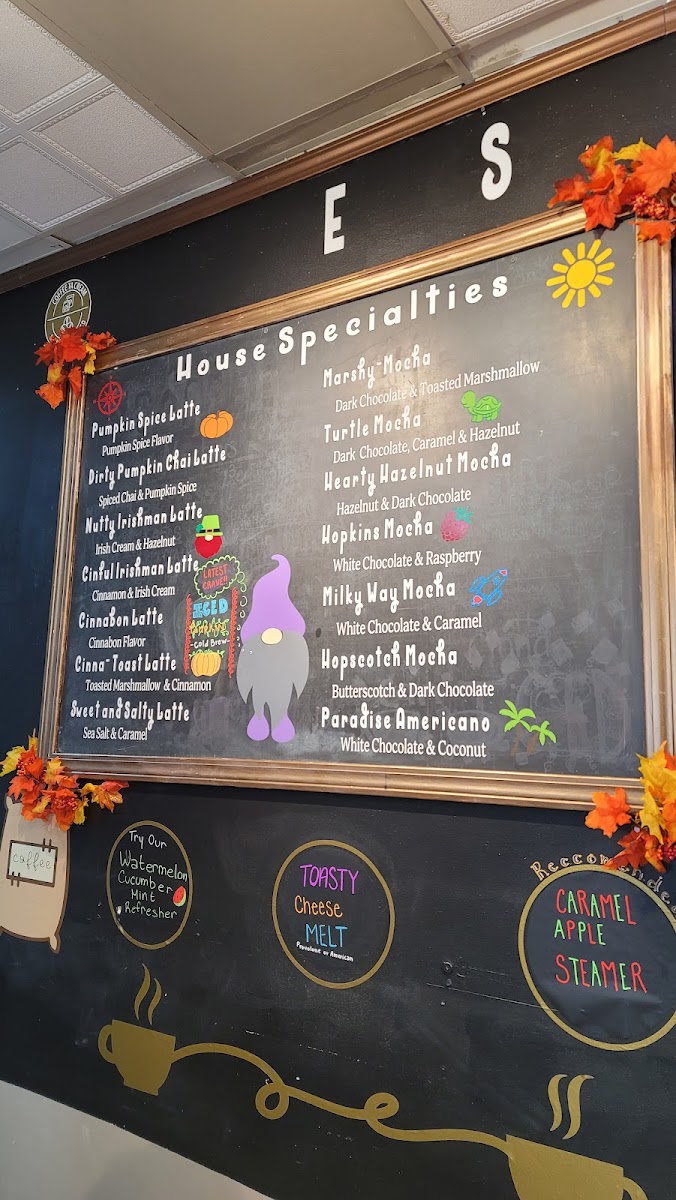 E S
COFFEE 'N CREAM
House Specialties
Pumpkin Spice Latte
Pumpkin Spice Flavor
Dirty Pumpkin Chai Latte
Spiced Chai & Pumpkin Spice
Nutty Irishman Latte
Irish Cream & Hazelnut
Cinful Irishman Latte
Cinnamon & Irish Cream
Cinnabon Latte
Cinnabon Flavor
Cinna-Toast Latte
Toasted Marshmallow & Cinnamon
Sweet and Salty Latte
Sea Salt & Caramel
LATEST
CRAVER
ICED
PUMPKIN
-Cold Brew-
Marshy-Mocha
Dark Chocolate & Toasted Marshmallow
Turtle Mocha
Dark Chocolate, Caramel & Hazelnut
Hearty Hazelnut Mocha
Hazelnut & Dark Chocolate
Hopkins Mocha
White Chocolate & Raspberry
Milky Way Mocha
White Chocolate & Caramel
Hopscotch Mocha
Butterscotch & Dark Chocolate
Paradise Americano
White Chocolate & Coconut
coffee
Try Our
Watermelon
Cucumber
Mint
Refresher
TOASTY
Cheese
MELT
Provolone or American
Reccomended
CARAMEL
APPLE
STEAMER